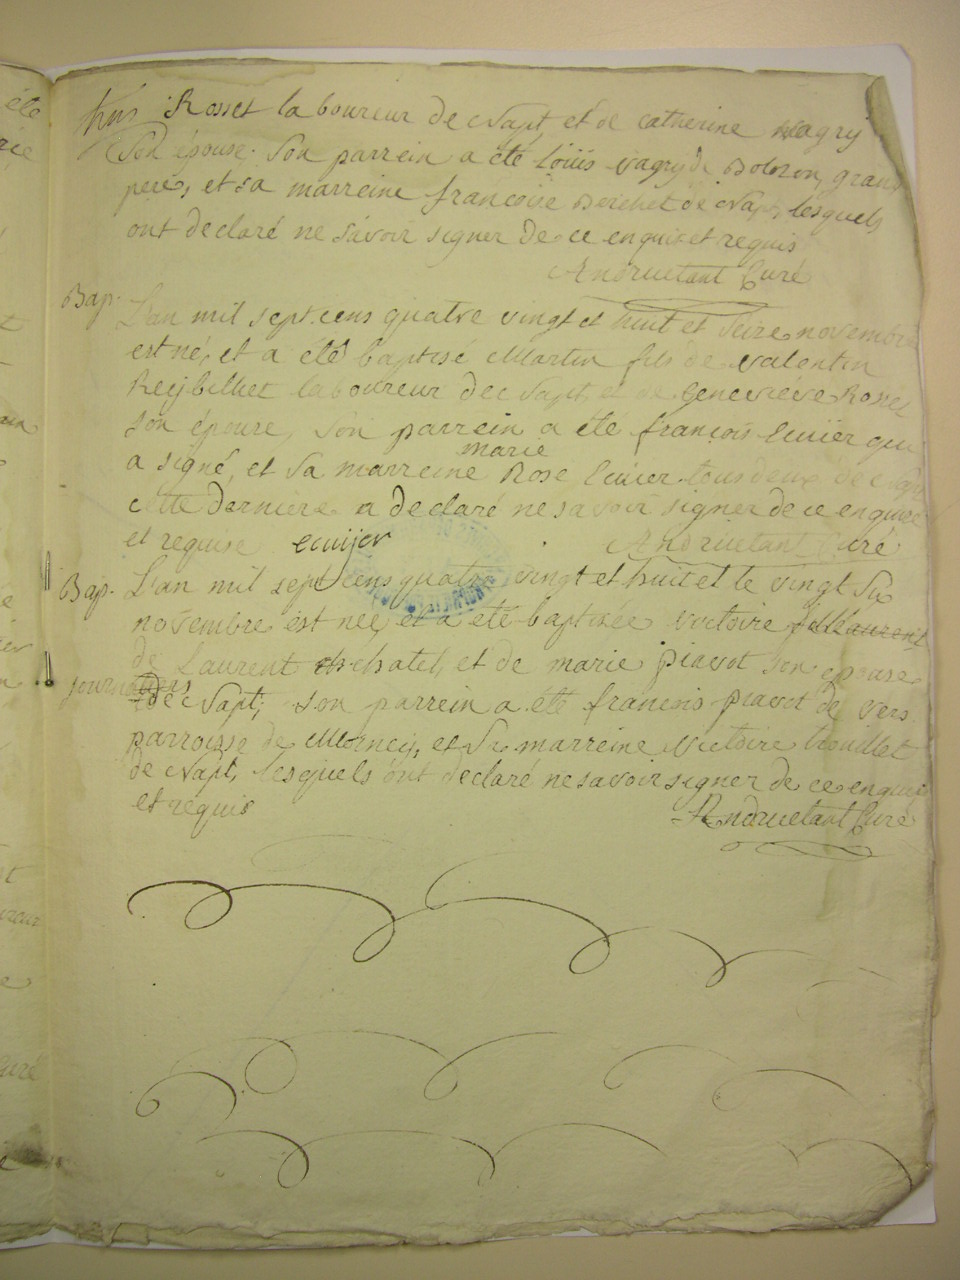 Rosset laboureur de Napt, et de catherine vagry
son épouse. Son parrein a été loüis vagry de Bolozon, grand
pere, et sa marreine françoise Berchet de Napt, lesquels
ont declaré ne sávoir signer de ce enquis et requis
Andruetant Curé
Bap. L'an mil sept cens quatre vingt et huit et seize novembre
est né, et a été baptisé Martin fils de valentin
Reybillet laboureur de Napt, et de Genevieve Rosset
son épouse, són parrein a été françois Cuiier qui
a signé, et sa marreine marie Rose Cuiier tous deux de
cette derniere a declaré ne savoir signer de ce enquise
et requise ecuijer Andruetant Curé
Bap. L'an mil sept cens quatre vingt et huit et le vingt six
novembre est née, et a été baptisée victoire
de Laurent chatel, et de marie piavot son épouse
journaliers de Napt; son parrein a été francois piavot de vers
parroisse de Morney, et sa marreine victoire trouillet
de Napt, lesquels ont declaré ne savoir signer de ce enquis
et requis Andruetant Curé